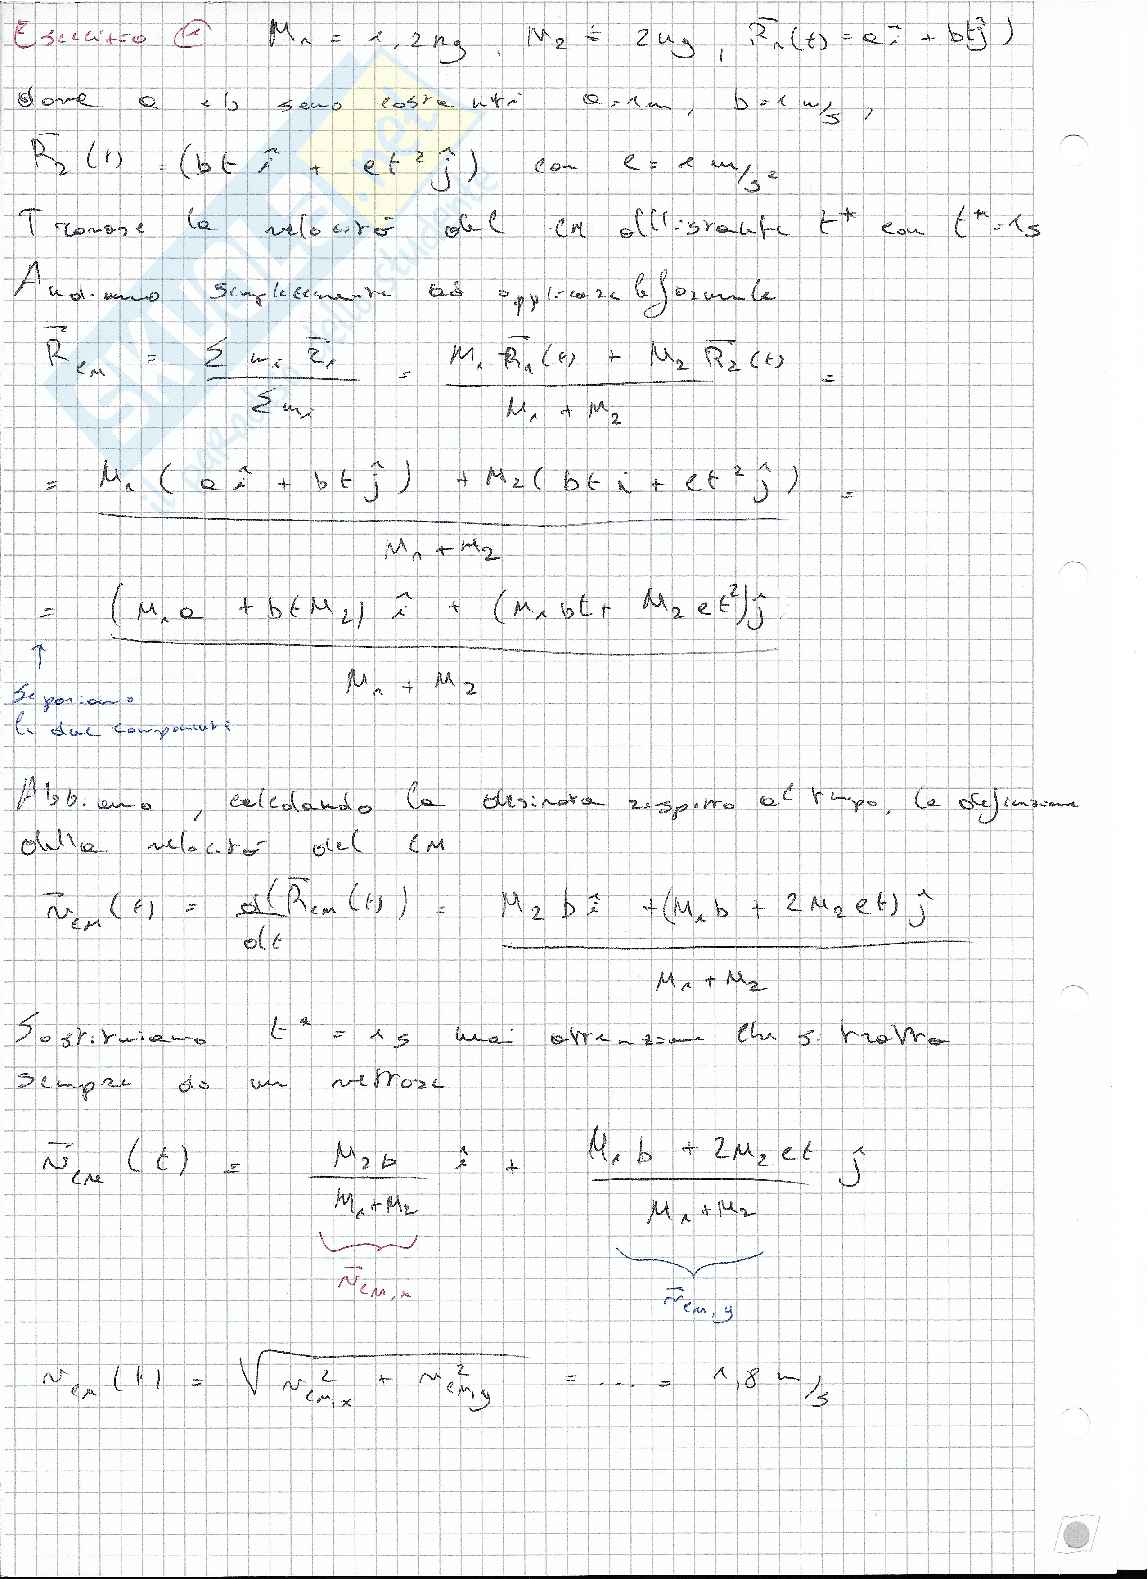 Esercizio
M₁ = 1,2 kg, M₂ = 2 kg, R̄₁(t) = (a î + bt ĵ)
dove a e b sono costanti a = 1 m, b = 1 m/s,
R̄₂(t) = (bt î + et² ĵ) con e = 1 m/s²
Trovare la velocità del CM all'istante t* con t* = 1s
Andiamo semplicemente ad applicare la formula
R̄CM = Σ mᵢ r̄ᵢ / Σ mᵢ = M₁ R̄₁(t) + M₂ R̄₂(t) / M₁ + M₂ =
= M₁ ( a î + bt ĵ ) + M₂ ( bt i + et² ĵ ) / M₁ + M₂ =
= (M₁ a + bt M₂) î + (M₁ bt + M₂ et²) ĵ / M₁ + M₂
↑
Separiamo
le due componenti
Abbiamo, calcolando la derivata rispetto al tempo, la definizione
della velocità del CM
v̄CM (t) = d(R̄CM (t)) / dt = M₂ b î + (M₁ b + 2 M₂ et) ĵ / M₁ + M₂
Sostituiamo t* = 1s attenzione che si tratta
sempre di un vettore
v̄CM (t) = M₂ b / M₁ + M₂ î + M₁ b + 2 M₂ et / M₁ + M₂ ĵ
v̄CM,x v̄CM,y
vCM (t) = √ v²CM,x + v²CM,y = ... = 1,8 m/s
SKUOLA.net
il paradiso dello studente